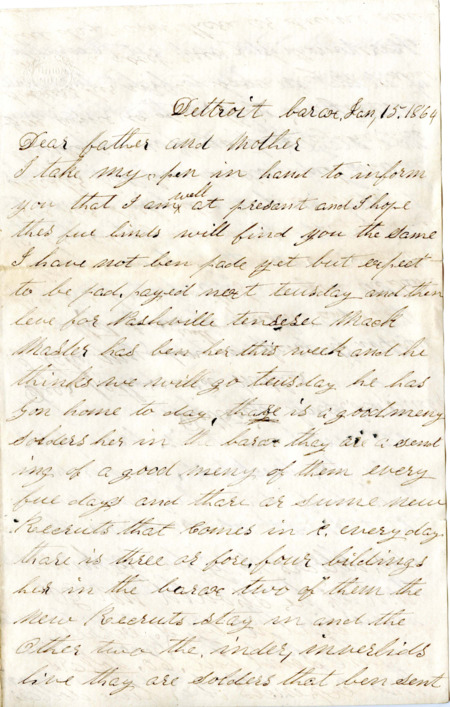 Dettroit barax, Jan, 15. 1864
Dear father and Mother
I take my pen in hand to inform
you that I am well at present and I hope
this fue linds will find you the same
I have not ben pade yet but expect
to be pad, payed next teusday and then
leve for Nashville tenesee Mack
Master has ben her this week and he
thinks we will go teusday he has
gon home to day, thare is a good meny
solders her in the barax they are a send
ing of a good meny of them every
fue days and thare ar sume new
Recruits that Comes in every day.
thare is three or fore, four bildings
her in the barax two of them the
new Recruits stay in and the
Other two the inder, inverlids
live thay are solders that ben sent